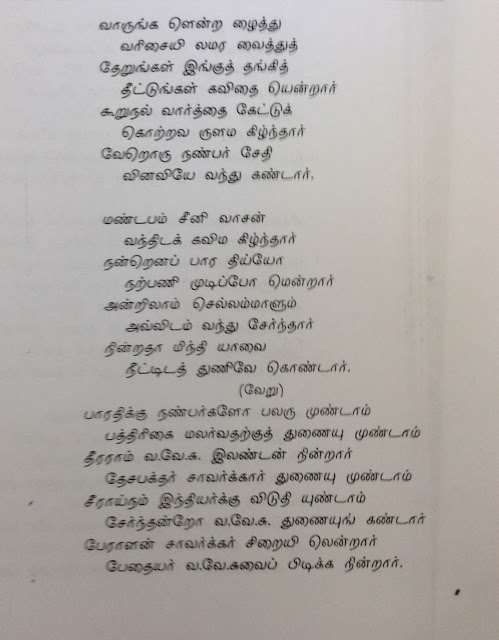 வாருங்க ளென்ற ழைத்து
வரிசையி லமர வைத்துத்
தேறுங்கள் இங்குத் தங்கித்
தீட்டுங்கள் கவிதை யென்றார்
கூறுநல் வார்த்தை கேட்டுக்
கொற்றவ ருளம கிழ்ந்தார்
வேறொரு நண்பர் சேதி
வினவியே வந்து கண்டார்.
மண்டபம் சீனி வாசன்
வந்திடக் கவிம கிழ்ந்தார்
நன்றெனப் பார திய்யோ
நற்பணி முடிப்போ மென்றார்
அன்றிலாம் செல்லம்மாளும்
அவ்விடம் வந்து சேர்ந்தார்
நின்றதா மிந்தி யாவை
நீட்டிடத் துணிவே கொண்டார்.
(வேறு)
பாரதிக்கு நண்பர்களோ பலரு முண்டாம்
பத்திரிகை மலர்வதற்குத் துணையு முண்டாம்
தீரராம் வ.வே.சு. இலண்டன் நின்றார்
தேசபக்தர் சாவர்க்கார் துணையு முண்டாம்
சீராய்நம் இந்தியர்க்கு விடுதி யுண்டாம்
சேர்ந்தன்றோ வ.வே.சு. துணையுங் கண்டார்
பேராளன் சாவர்க்கர் சிறையி லென்றார்
பேதையர் வ.வே.சுவைப் பிடிக்க நின்றார்.